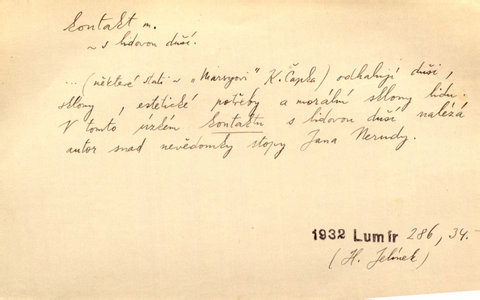 kontakt m.
~ s lidovou duší.
... (některé stati v „Marsyovi" K. Čapka) odhalují duši,
sklony, estetické potřeby a morální sklony lidu.
V tomto úzkém kontaktu s lidovou duší nalézá
autor snad nevědomky stopy Jana Nerudy.
1932 Lumír 286, 34.-
(H. Jelínek)